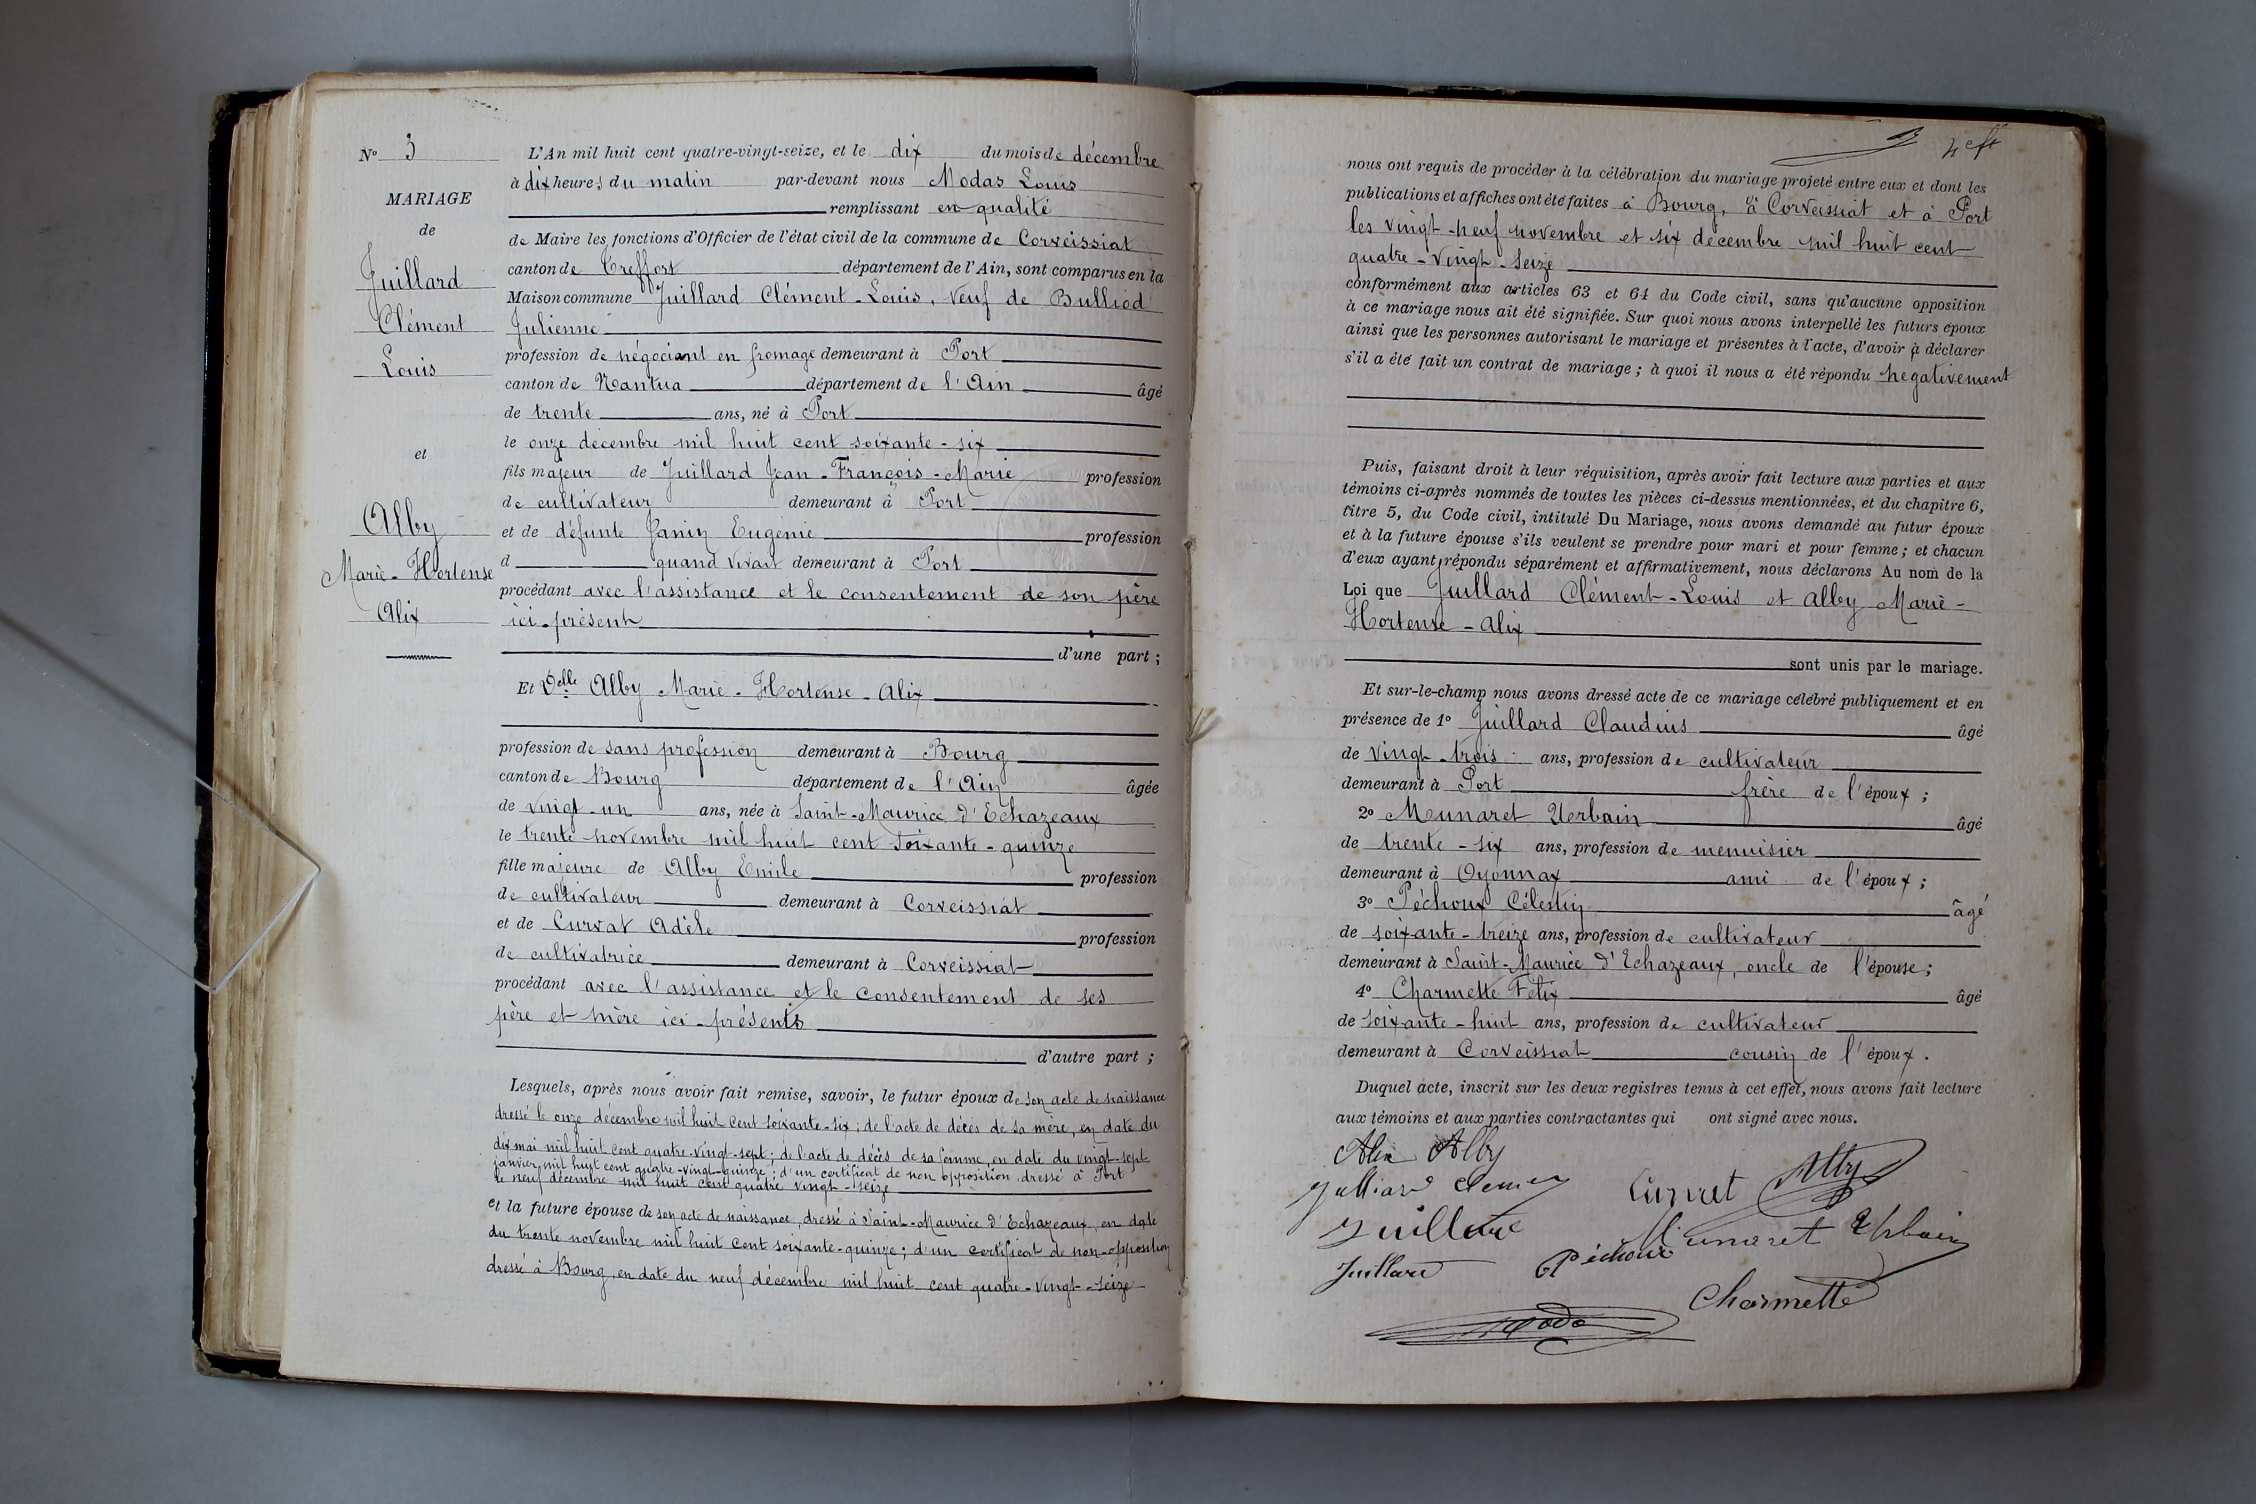 N° 3
MARIAGE
de
Juillard
Clément
Louis
et
Alby
Marie-Hortense
Alix
L'An mil huit cent quatre-vingt-seize, et le dix du mois de décembre
à dix heures du matin par-devant nous Modas Louis
remplissant en qualité
de Maire les fonctions d'Officier de l'état civil de la commune de Corveissiat
canton de Treffort département de l'Ain, sont comparus en la
Maison commune Juillard Clément-Louis, veuf de Bulliod
Julienne
profession de négociant en fromage demeurant à Port
canton de Nantua département de l'Ain âgé
de trente ans, né à Port
le onze décembre mil huit cent soixante-six
fils majeur de Juillard Jean-François-Marie profession
de cultivateur demeurant à Port
et de défunte Janin Eugénie profession
d quand vivait demeurant à Port
procédant avec l'assistance et le consentement de son père
ici-présent
d'une part ;
Et Delle Alby Marie-Hortense-Alix
profession de sans profession demeurant à Bourg
canton de Bourg département de l'Ain âgée
de vingt-un ans, née à Saint-Maurice d'Echazeaux
le trente novembre mil huit cent soixante-quinze
fille majeure de Alby Emile profession
de cultivateur demeurant à Corveissiat
et de Curvat Adèle profession
de cultivatrice demeurant à Corveissiat
procédant avec l'assistance et le consentement de ses
père et mère ici-présents
d'autre part ;
Lesquels, après nous avoir fait remise, savoir, le futur époux de son acte de naissance
dressé le onze décembre mil huit cent soixante-six ; de l'acte de décès de sa mère, en date du
dix mai mil huit cent quatre-vingt-sept ; de l'acte de décès de sa femme, en date du vingt-sept
janvier mil huit cent quatre-vingt-quinze ; d'un certificat de non opposition dressé à Port
le neuf décembre mil huit cent quatre vingt-seize
et la future épouse de son acte de naissance, dressé à Saint-Maurice d'Echazeaux, en date
du trente novembre mil huit cent soixante-quinze ; d'un certificat de non-opposition
dressé à Bourg, en date du neuf décembre mil huit cent quatre-vingt-seize
nous ont requis de procéder à la célébration du mariage projeté entre eux et dont les
publications et affiches ont été faites à Bourg, à Corveissiat et à Port
les vingt-neuf novembre et six décembre mil huit cent
quatre-vingt-seize
conformément aux articles 63 et 64 du Code civil, sans qu'aucune opposition
à ce mariage nous ait été signifiée. Sur quoi nous avons interpellé les futurs époux
ainsi que les personnes autorisant le mariage et présentes à l'acte, d'avoir à déclarer
s'il a été fait un contrat de mariage ; à quoi il nous a été répondu négativement
Puis, faisant droit à leur réquisition, après avoir fait lecture aux parties et aux
témoins ci-après nommés de toutes les pièces ci-dessus mentionnées, et du chapitre 6,
titre 5, du Code civil, intitulé Du Mariage, nous avons demandé au futur époux
et à la future épouse s'ils veulent se prendre pour mari et pour femme ; et chacun
d'eux ayant répondu séparément et affirmativement, nous déclarons Au nom de la
Loi que Juillard Clément-Louis et Alby Marie-
Hortense-Alix
sont unis par le mariage.
Et sur-le-champ nous avons dressé acte de ce mariage célébré publiquement et en
présence de 1° Juillard Claudius âgé
de vingt-trois ans, profession de cultivateur
demeurant à Port frère de l'époux ;
2° Munaret Urbain âgé
de trente-six ans, profession de menuisier
demeurant à Oyonnax ami de l'époux ;
3° Péchoux Célestin âgé
de soixante-treize ans, profession de cultivateur
demeurant à Saint-Maurice d'Echazeaux, oncle de l'épouse ;
4° Charmette Félix âgé
de soixante-huit ans, profession de cultivateur
demeurant à Corveissiat cousin de l'époux.
Duquel acte, inscrit sur les deux registres tenus à cet effet, nous avons fait lecture
aux témoins et aux parties contractantes qui ont signé avec nous.
Alix Alby
Alby
Juillard
Munaret Urbain
Juillard
Péchoux
Charmette